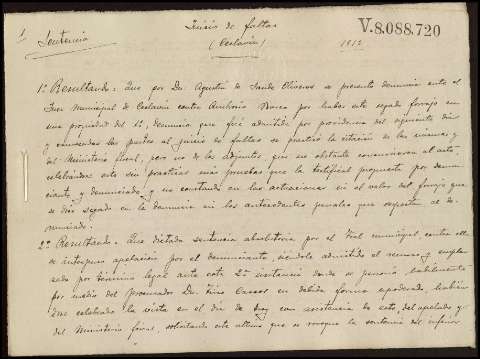 1
Sentencia
Juicio de faltas
V.8.088.720
(Ceclavin)
1912
1º Resultando: Que por Dn Agustin de Sande Oliveros se presentó denuncia ante el
Juez Municipal de Ceclavin contra Ambrosio por haber este segado forraje en
una propiedad del 1º, denuncia que fué admitida por providencia del siguiente dia
y convocadas las partes al juicio de faltas se practicó la citación de las mismas y
del Ministerio fiscal, pero no de los adjuntos, que no obstante concurrieron al acto,
celebrándose este sin practicar más pruebas que la testifical propuesta por denun-
ciante y denunciado y no constando en las actuaciones ni el valor del forraje que
se dice segado en la denuncia ni los antecedentes penales que respecto al de-
nunciado.
2º Resultando: Que dictada sentencia absolutoria por el Tbal municipal contra ella
se interpuso apelación por el denunciante, siendole admitido el recurso y empla-
zado por término legal ante esta 2ª instancia donde se personó habilmente
por medio del Procurador Dn en debida forma apoderado, habién-
dose celebrado la vista en el dia de hoy con asistencia de este, del apelado y
del Ministerio fiscal, solicitando este último que se revoque la sentencia del inferior